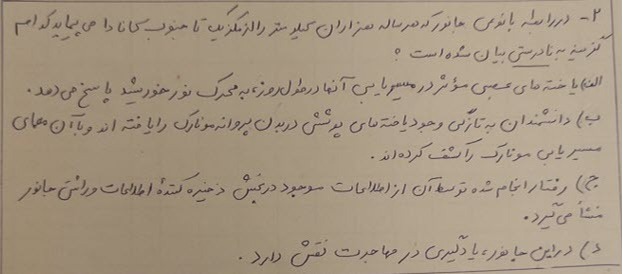 ۲- در رابطه با نوعی جانور که هر ساله هزاران کیلومتر را از مکزیک تا جنوب کانادا می پیماید کدام
گزینه به نادرستی بیان شده است ؟
الف) یاخته های عصبی مؤثر در مسیریابی آنها در طول روز، به محرک نور خورشید پاسخ می دهد.
ب) دانشمندان به تازگی وجود یاخته های پوششی در بدن پروانه مونارک را یافته اند و با آن معمای
مسیریابی مونارک را کشف کرده اند.
ج) رفتار انجام شده توسط آن از اطلاعات موجود در بخش ذخیره کنندۀ اطلاعات وراثتی جانور
منشأ می گیرد.
د) در این جانور، یادگیری در مهاجرت نقش دارد.